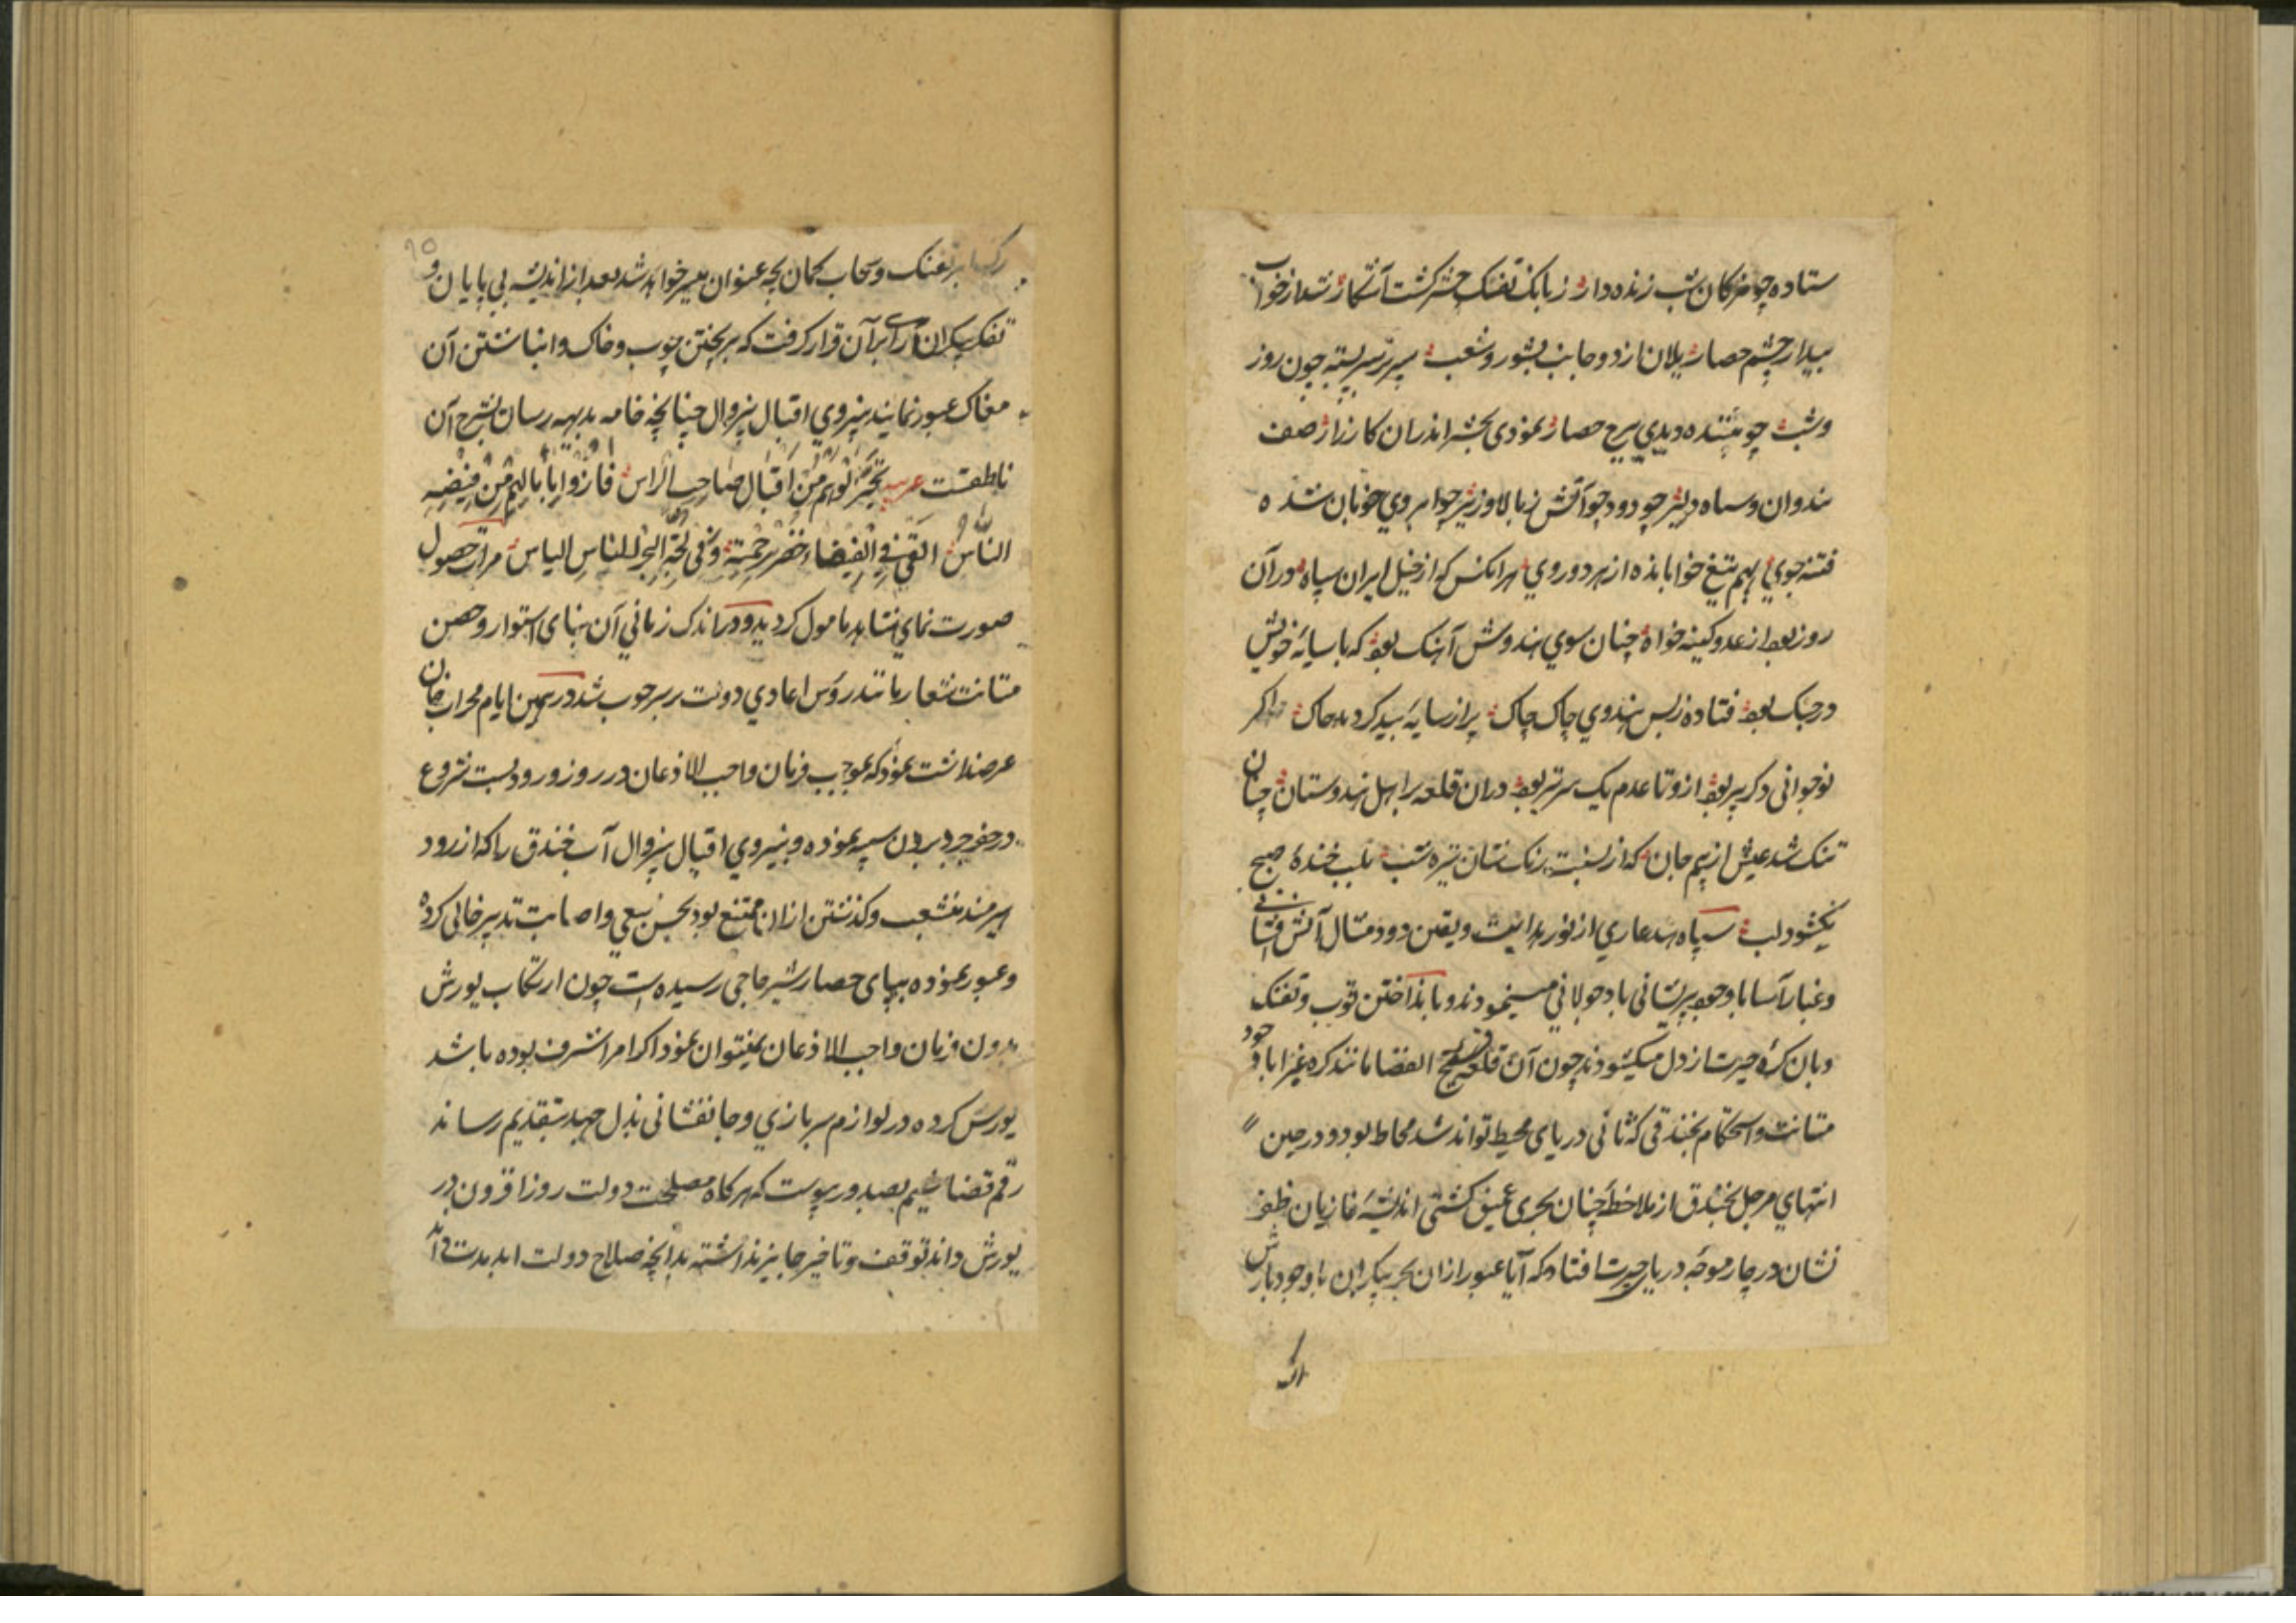 ستاده چو مژکان شب زنده دار ز بانک تفنک حشر کشت آشکار نشد از خواب
بیدار چشم حصار یلان از دو جانب بشور و شغب سپر بر سر بسته چون روز
و شب چو بیننده دیدی ببرج حصار نمودی بحشر اندران کارزار صف
هندوان و سپاه دلیر چو دود و چو آتش ز بالا و زیر چو ابروی خوبان شده
فتنه جوی بهم تیغ خوابانده از هر دو روی هر انکس که از خیل ایران سپاه در آن
روز بود از عدو کینه خواه چنان سوی هندوش آهنک بود که با سایه خویش
در جنک بود فتاده ز بس هندوی چاک چاک پر از سایه بید کردید خاک اکر
نوجوانی و کر پیر بود ازو تا عدم یک سر تیر بود دران قلعه بر اهل هندوستان چنان
تنک شد عیش از بیم جان که از نسبت رنک شان تیره شب بلب خنده صبح
نکشود لب سپاه هند عاری از نور هدایت و یقین دود مثال آتش فشانی
و غبار آسا با وجود پریشانی باد جولانی مینمودند و با نداختن توپ و تفنک
و بان کره حیرت از دل میکشودند چون آن قلعه فسیح الفضا مانند کره غبرا با وجود
متانت و استحکام بخندقی که ثانی دریای محیط تواند شد محاط بود و در حین
انتهای مرحل بخندق از ملاحظه چنان بحری عمیق کشتی اندیشه غازیان ظفر
نشان در چار موجه دریای حیرت افتاد که آیا عبور ازان بحر بیکران با وجود بارش
تفنک و سحاب کمان بچه عنوان میسر خواهد شد بعد از اندیشه بی پایان و
تفکر بیکران رای بر آن قرار کرفت که بریختن چوب و خاک و انباشتن آن
مغاک عبور نمایند بنیروی اقبال بیزوال چنانچه خامه بدیهه رسان بشرح آن
ناطقست عربیه اقبال صاحب الراس
الناس القی فی الفیضاء خضر برحمته و فی لجة البحر للناس الیاس مرات حصول
صورت نمای شاهد مامول کردید و در اندک زمانی آن بنای استوار و حصن
متانت شعار مانند روس اعادی دولت بر سر چوب شد در همین ایام محراب خان
عرضداشت نمود که بموجب فرمان واجب الاذعان در روز ورود بست شروع
در حفر جر و بردن سیبه نموده و بنیروی اقبال بیزوال آب خندق را که از رود
هیرمند منشعب و کذشتن ازان ممتنع بود بحسن سعی و اصابت تدبیر خالی کرده
و عبور نموده بپای حصار شیر حاجی رسیده است چون ارتکاب یورش
بدون فرمان واجب الاذعان نمیتوان نمود اکر امر اشرف بوده باشد
یورش کرده در لوازم سربازی و جانفشانی بذل جهد بتقدیم رساند
رقم قضا شیم بصدور پیوست که هرکاه مصلحت دولت روز افزون در
یورش داند توقف و تاخیر جایز نداشته بدانچه صلاح دولت ابد مدت